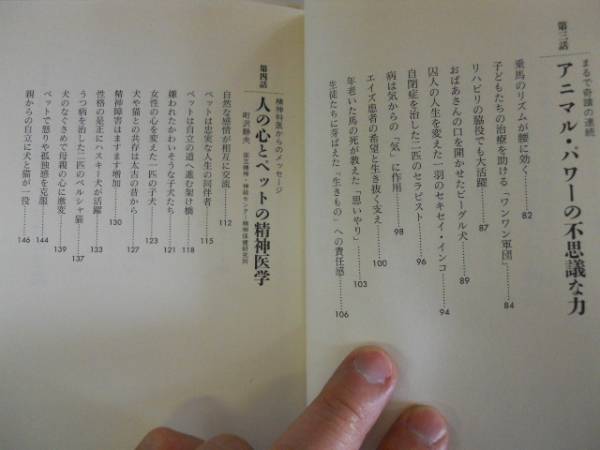 第三話
まるで奇蹟の連続
アニマル・パワーの不思議な力
乗馬のリズムが腰に効く……… 82
子どもたちの治療を助ける「ワンワン軍団」……… 84
リハビリの脇役でも大活躍……… 87
おばあさんの口を開かせたビーグル犬……… 89
囚人の人生を変えた一羽のセキセイ・インコ……… 94
自閉症を治した二匹のセラピスト……… 96
病は気からの「気」に作用……… 98
エイズ患者の希望と生き抜く支え……… 100
年老いた馬の死が教えた「思いやり」……… 103
生徒たちに芽ばえた「生きもの」への責任感……… 106
第四話
精神科医からのメッセージ
人の心とペットの精神医学
町沢静夫 国立精神・神経センター精神保健研究所
自然な感情が相互に交流……… 112
ペットは忠実な人生の同伴者……… 115
ペットは自立の道へ進む架け橋……… 118
嫌われたかわいそうな子犬たち……… 121
女性の心を変えた一匹の子犬……… 123
犬や猫との共存は太古の昔から……… 127
精神障害はますます増加……… 130
性格の是正にハスキー犬が活躍……… 133
うつ病を治した二匹のペルシャ猫……… 137
犬のなぐさめで母親の心に激変……… 139
ペットで怒りや孤独感を克服……… 144
親からの自立に犬と猫が一役……… 146